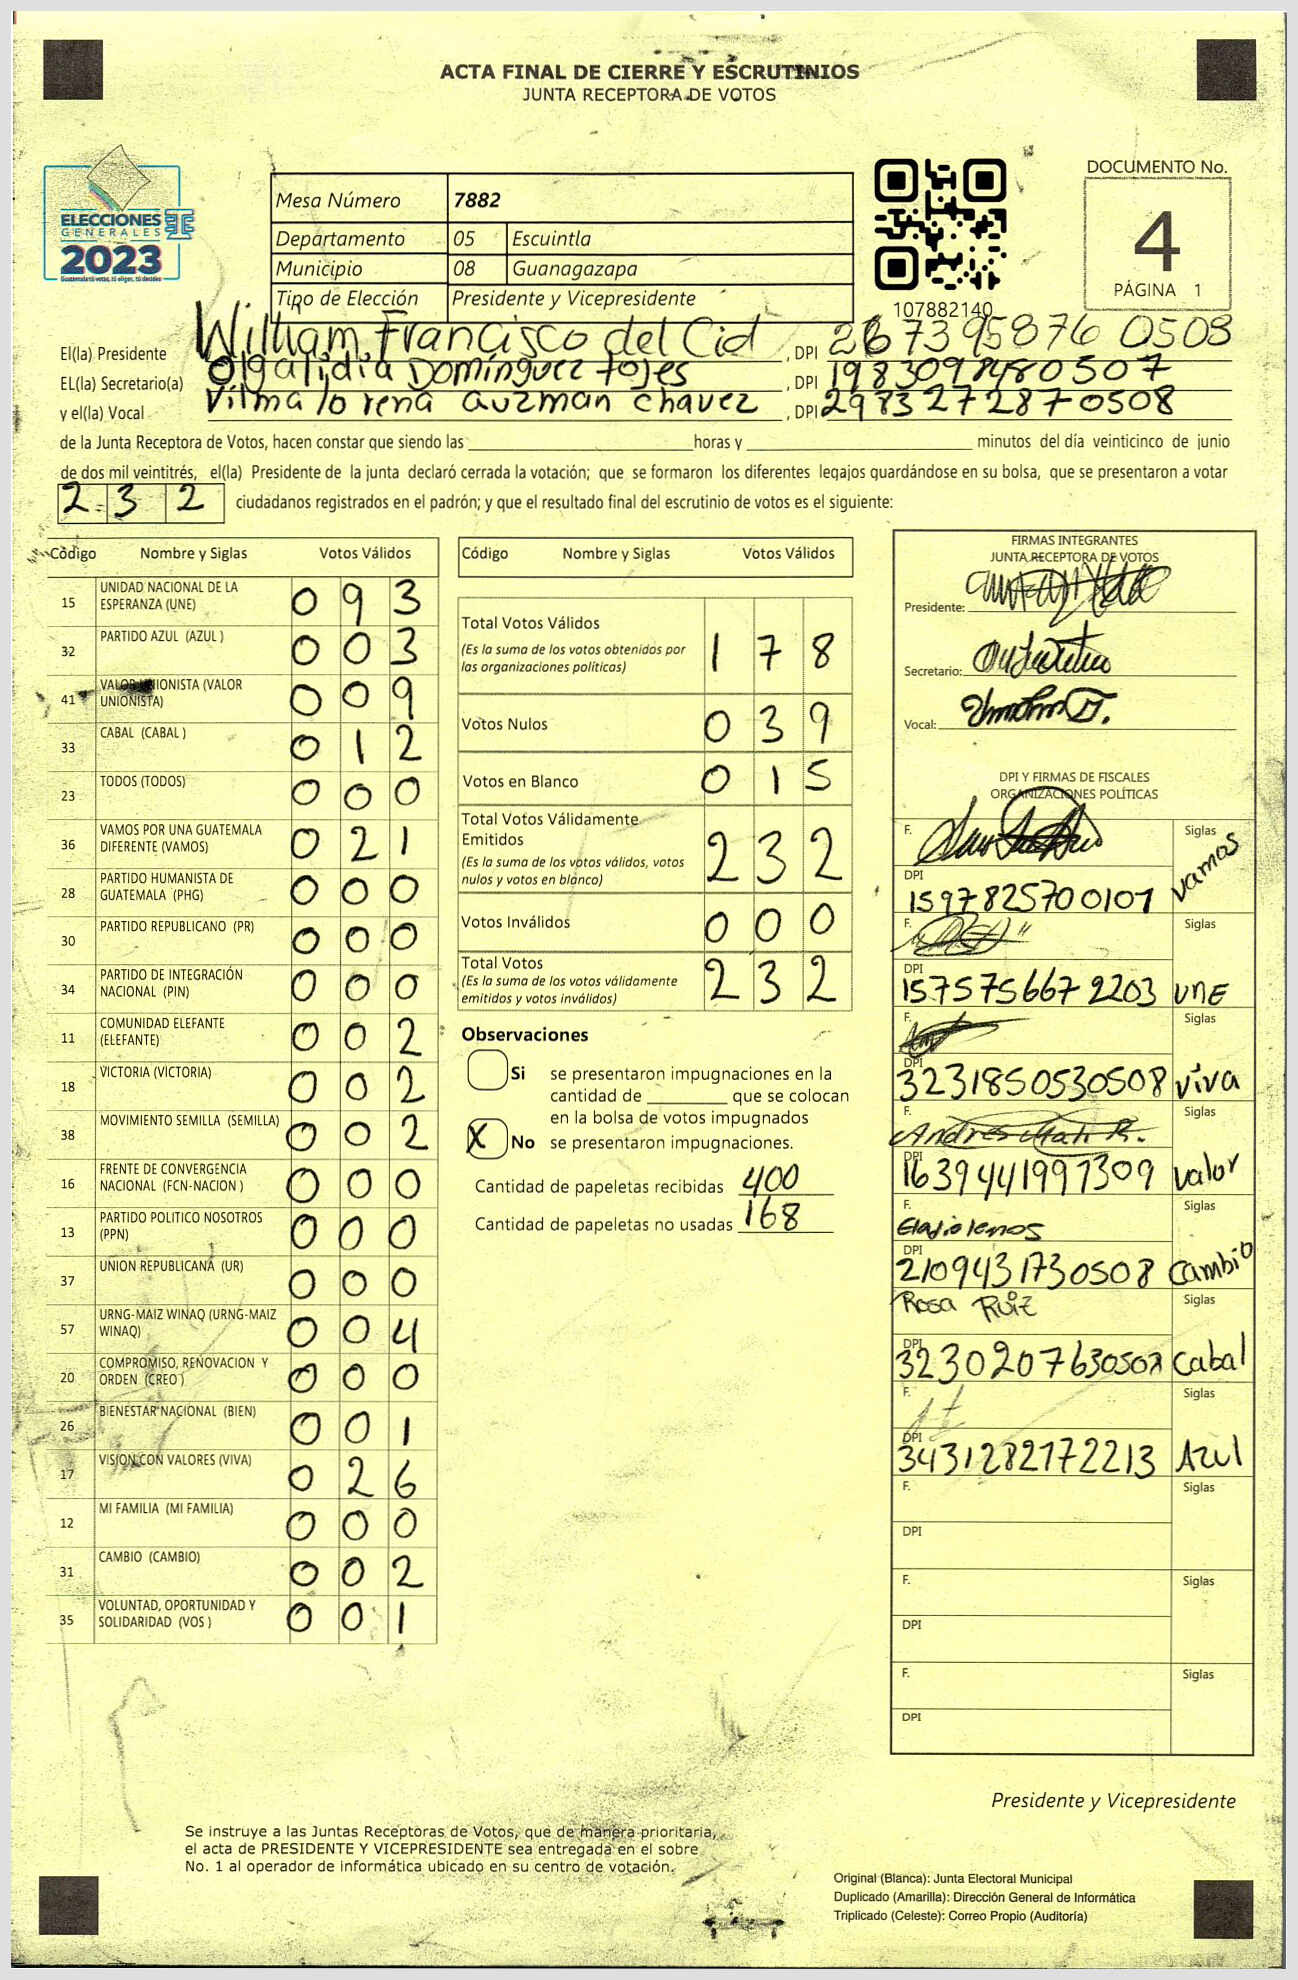 ACTA FINAL DE CIERRE Y ESCRUTINIOS
JUNTA RECEPTORA DE VOTOS
ELECCIONES
GENERALES
2023
Guatemala tú votas, tú eliges, tú decides
Mesa Número 7882
Departamento 05 Escuintla
Municipio 08 Guanagazapa
Tipo de Elección Presidente y Vicepresidente
107882140
DOCUMENTO No.
4
PÁGINA 1
El(la) Presidente William Francisco del Cid , DPI 2673958760508
EL(la) Secretario(a) Olga lidia Domínguez , DPI 1983098480507
y el(la) Vocal Vilma lorena Guzman Chavez , DPI 2983272870508
de la Junta Receptora de Votos, hacen constar que siendo las horas y minutos del día veinticinco de junio
de dos mil veintitrés, el(la) Presidente de la junta declaró cerrada la votación; que se formaron los diferentes legajos quardándose en su bolsa, que se presentaron a votar
232 ciudadanos registrados en el padrón; y que el resultado final del escrutinio de votos es el siguiente:
Código Nombre y Siglas Votos Válidos
15 UNIDAD NACIONAL DE LA ESPERANZA (UNE) 093
32 PARTIDO AZUL (AZUL ) 003
41 VALOR UNIONISTA (VALOR UNIONISTA) 009
33 CABAL (CABAL ) 012
23 TODOS (TODOS) 000
36 VAMOS POR UNA GUATEMALA DIFERENTE (VAMOS) 021
28 PARTIDO HUMANISTA DE GUATEMALA (PHG) 000
30 PARTIDO REPUBLICANO (PR) 000
34 PARTIDO DE INTEGRACIÓN NACIONAL (PIN) 000
11 COMUNIDAD ELEFANTE (ELEFANTE) 002
18 VICTORIA (VICTORIA) 002
38 MOVIMIENTO SEMILLA (SEMILLA) 002
16 FRENTE DE CONVERGENCIA NACIONAL (FCN-NACION ) 000
13 PARTIDO POLITICO NOSOTROS (PPN) 000
37 UNION REPUBLICANA (UR) 000
57 URNG-MAIZ WINAQ (URNG-MAIZ WINAQ) 004
20 COMPROMISO, RENOVACION Y ORDEN (CREO ) 000
26 BIENESTAR NACIONAL (BIEN) 001
17 VISION CON VALORES (VIVA) 026
12 MI FAMILIA (MI FAMILIA) 000
31 CAMBIO (CAMBIO) 002
35 VOLUNTAD, OPORTUNIDAD Y SOLIDARIDAD (VOS ) 001
Código Nombre y Siglas Votos Válidos
Total Votos Válidos 178
(Es la suma de los votos obtenidos por
las organizaciones politicas)
Votos Nulos 039
Votos en Blanco 015
Total Votos Válidamente
Emitidos 232
(Es la suma de los votos válidos, votos
nulos y votos en blanco)
Votos Inválidos 000
Total Votos 232
(Es la suma de los votos válidamente
emitidos y votos inválidos)
Observaciones
Si se presentaron impugnaciones en la
cantidad de que se colocan
en la bolsa de votos impugnados
X No se presentaron impugnaciones.
Cantidad de papeletas recibidas 400
Cantidad de papeletas no usadas 168
FIRMAS INTEGRANTES
JUNTA RECEPTORA DE VOTOS
Presidente:
Secretario:
Vocal:
DPI Y FIRMAS DE FISCALES
ORGANIZACIONES POLÍTICAS
F. Siglas
DPI 1597825700101 vamos
F. Siglas
DPI 1575756672203 UNE
F. Siglas
DPI 3231850530508 viva
F. Andres Siglas
DPI 1639441997309 valor
F. Eladio lemos Siglas
DPI 2109431730508 Cambio
Rosa Ruiz Siglas
DPI 3230207630508 Cabal
F. Siglas
DPI 3431282172213 Azul
F. Siglas
DPI
F. Siglas
DPI
F. Siglas
DPI
Presidente y Vicepresidente
Se instruye a las Juntas Receptoras de Votos, que de manera prioritaria,
el acta de PRESIDENTE Y VICEPRESIDENTE sea entregada en el sobre
No. 1 al operador de informática ubicado en su centro de votación.
Original (Blanca): Junta Electoral Municipal
Duplicado (Amarilla): Dirección General de Informática
Triplicado (Celeste): Correo Propio (Auditoría)